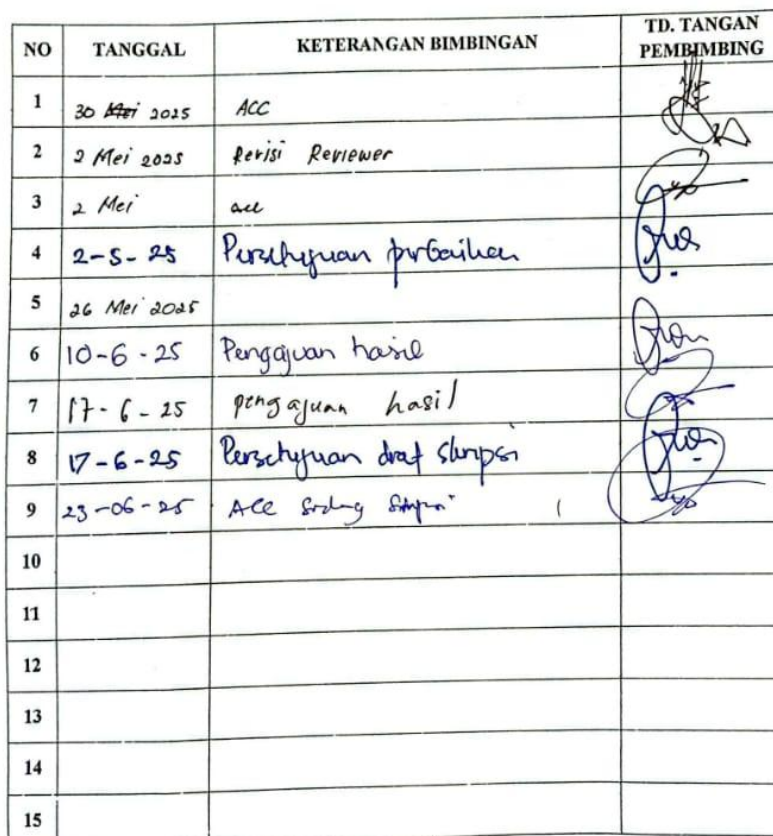 NO TANGGAL KETERANGAN BIMBINGAN TD. TANGAN PEMBIMBING
1 30 Mei 2025 ACC
2 2 Mei 2025 Revisi Reviewer
3 2 Mei acc
4 2-5-25 Persetujuan perbaikan
5 26 Mei 2025
6 10-6-25 Pengajuan hasil
7 17-6-25 pengajuan hasil
8 17-6-25 Persetujuan draf skripsi
9 23-06-25 ACC
10
11
12
13
14
15